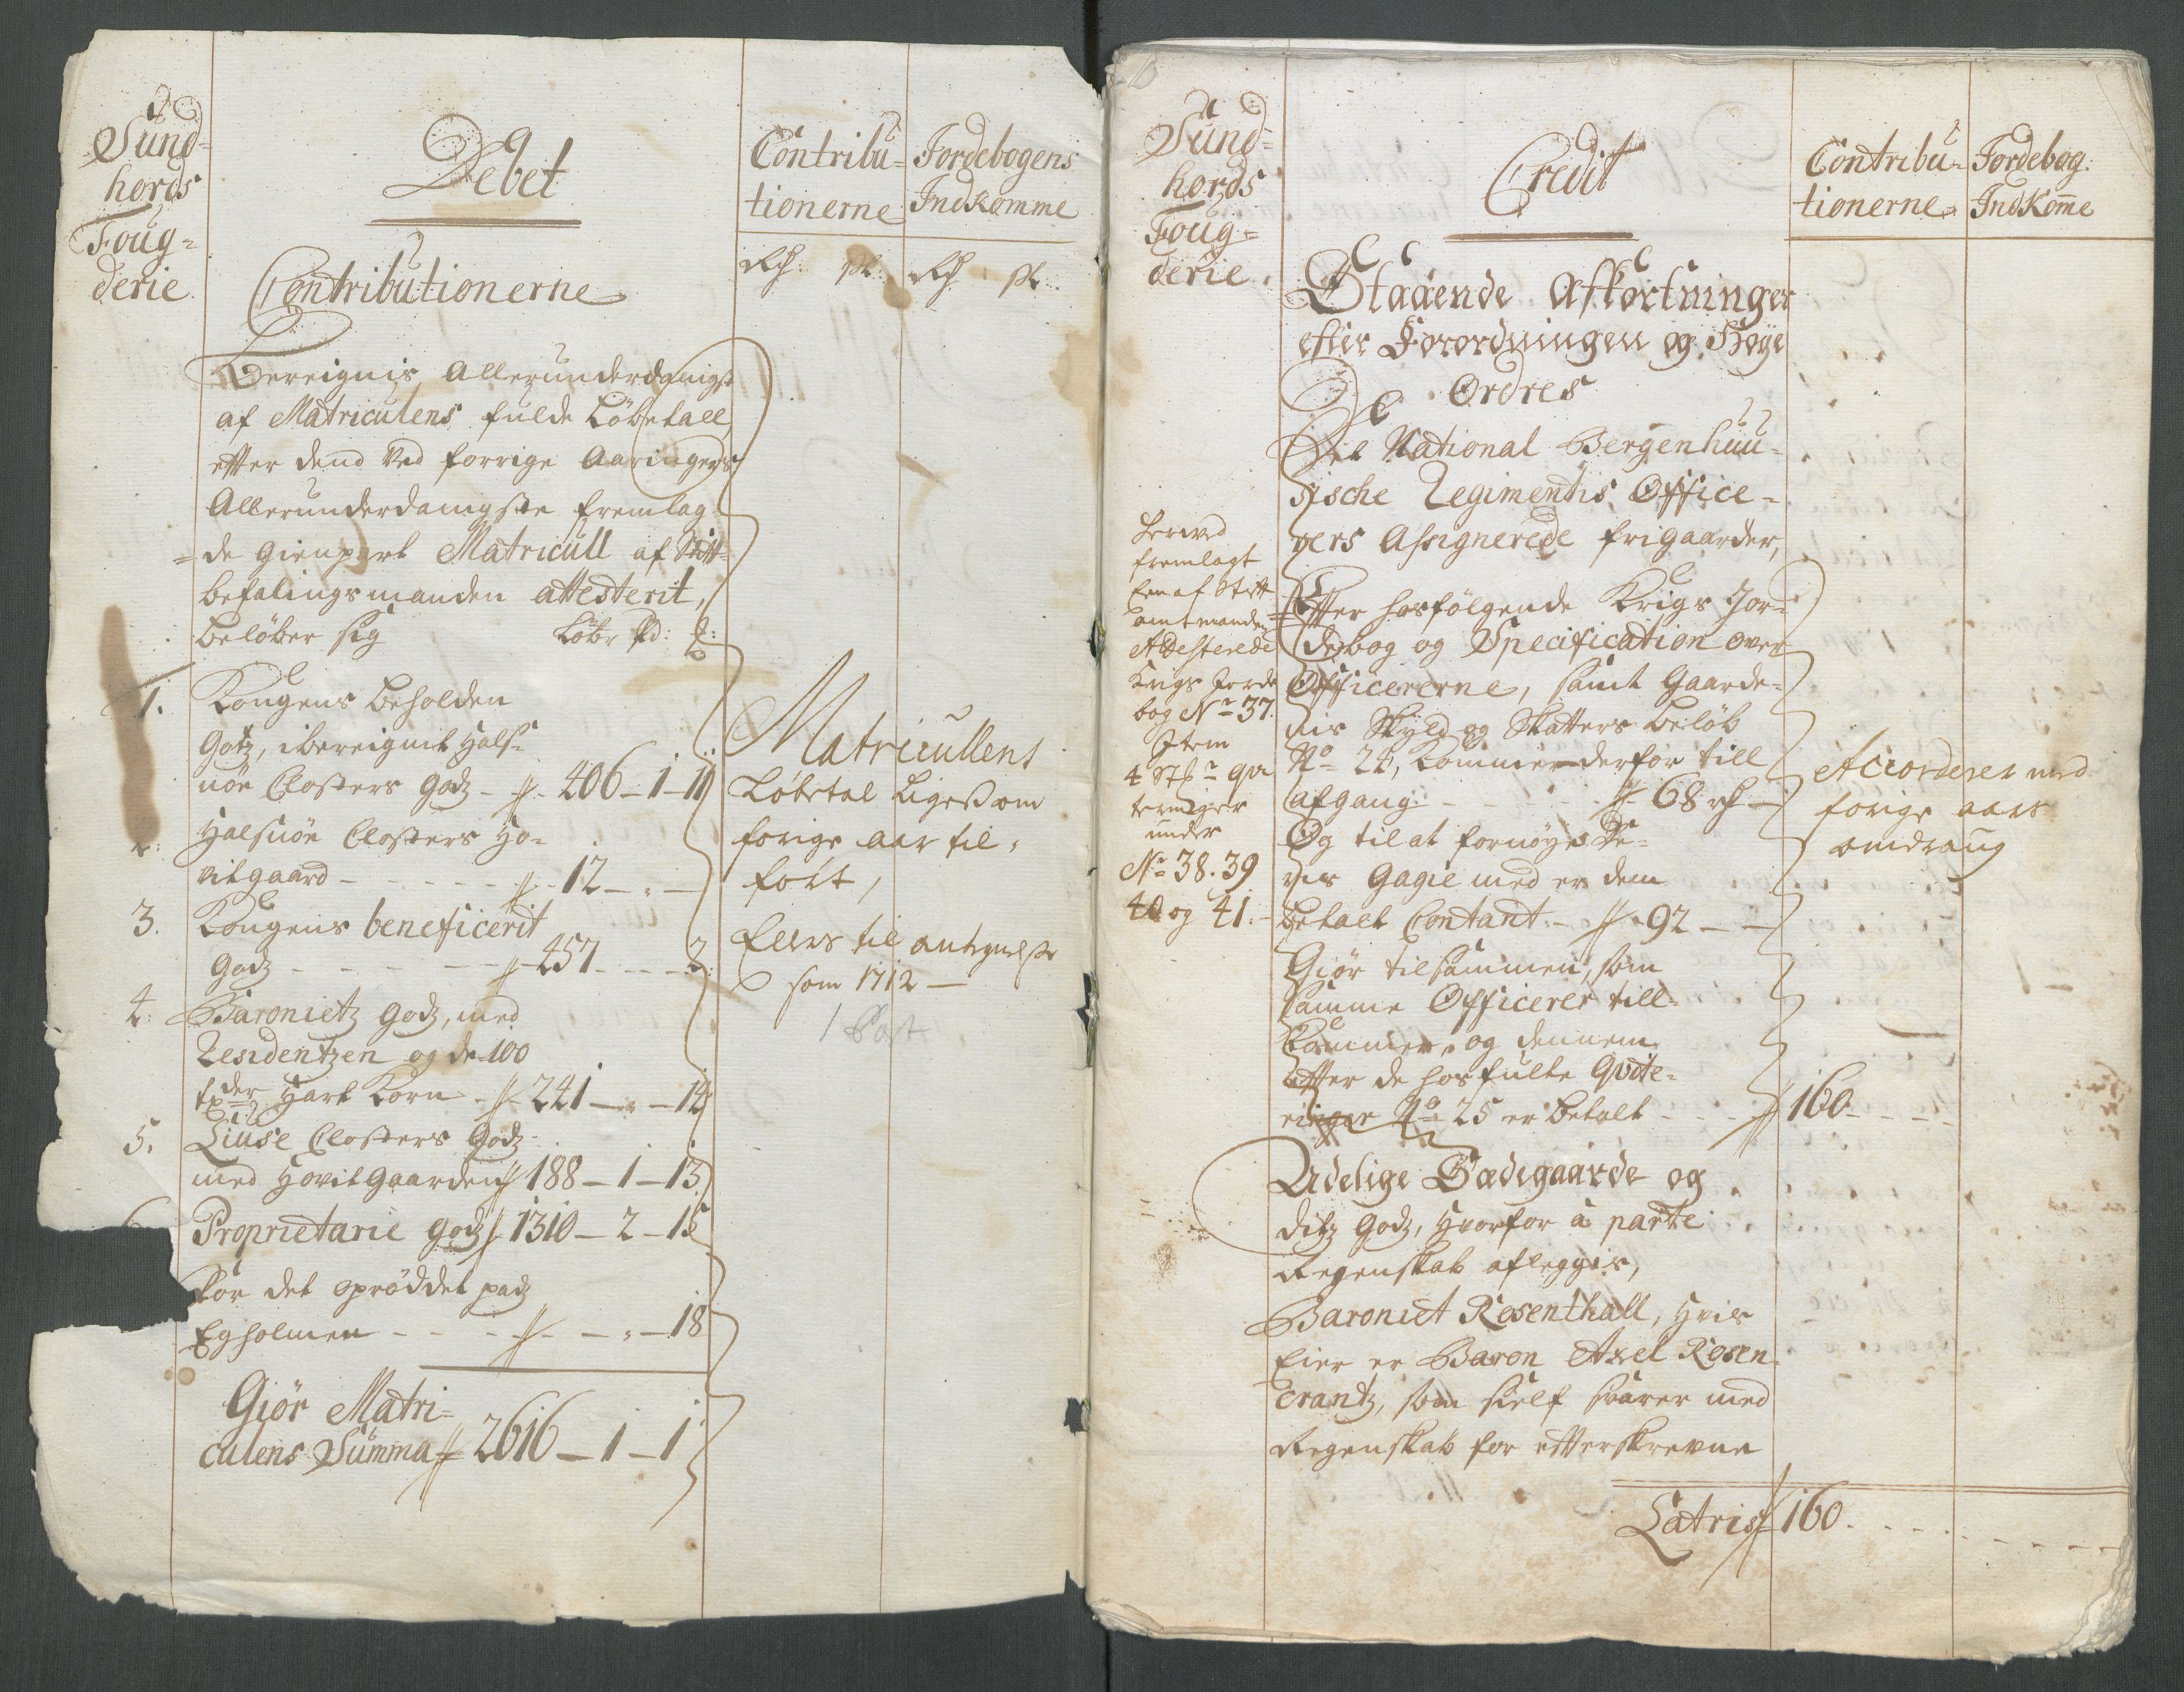 Sund-
hords
Foug-
derie
Debet
Contribu-
tionerne
Jordebogens
Indkomme
Contributionerne
Allerunderdanigst
af Matriculens fulde Löbetall
efter dend ved forrige Aaringers
Allerunderdanigste fremlag-
de Gienpart Matricull af Stift-
befalingsmanden attesterit,
belöber sig Löbr Pd:
1. Kongens beholden
Gotz, ibereignit Hals-
nöe Closters Godz - 406 - 1 - 11
2. Halsnöe Closters Ho-
vitgaard - - - - 12 - -
3. Kongens beneficerit
Godz - - - - 457 - - - 3
4. Baronietz Godz, med
Residentzen og de 100
tdr Hart Korn - 241 - - 14
5. Liuse Closters Godz
med Hovitgaarden 188 - 1 - 13
6. Proprietarie Godz 1310 - 2 - 15
for det öprÿddet padz
Egholmen - - - - - - 18
Giör Matri-
culens Summa 2616 - 1 - 1
Matricullens
Löbetal ligesom
forige aar til-
fört,
Ellers til antegnelse
som 1712 -
1 Post
Sund-
hords
Foug-
derie
Credit
Contribu-
tionerne
Jordebog:
Indkome
Staaende Afkortninger
efter Forordningen og Høye
Ordres
Det National Bergenhuu-
sische Regimentis Office-
rers Assignerede frigaarder,
Efter hosfölgende Krigs Jor-
debog og Specification over
Officererne, samt Gaarde-
nis Skyld og Skatters belöb
No 24, kommer derfor till
afgang - - - 68 rd -
Og til at fornöye De-
ris Gagie med er dem
betalt Contant - 92 - -
Giör tilsammen, som
samme Officerer till-
kommer, og dennem
efter de hosfulte Qvite-
ringer No 25 er betalt - - - 160 - - -
Herved
fremlagt
En af Stift
amtmanden
Attesterede
Krigs Jorde
bog No 37.
Item
4 St: qvi
teringer
under
No 38. 39
40 og 41. -
Accorderer med
forige aars
omdraug
Adelige Sædegaarde og
ditz Godz, Hvorfor à parte
Regenskab aflegges,
Baroniet Rosenthall, Hvis
Eier er Baron Axel Rosen-
crantz, som sielf svarer med
Regenskab for efterskrevne
Latris 160 - - - - - -